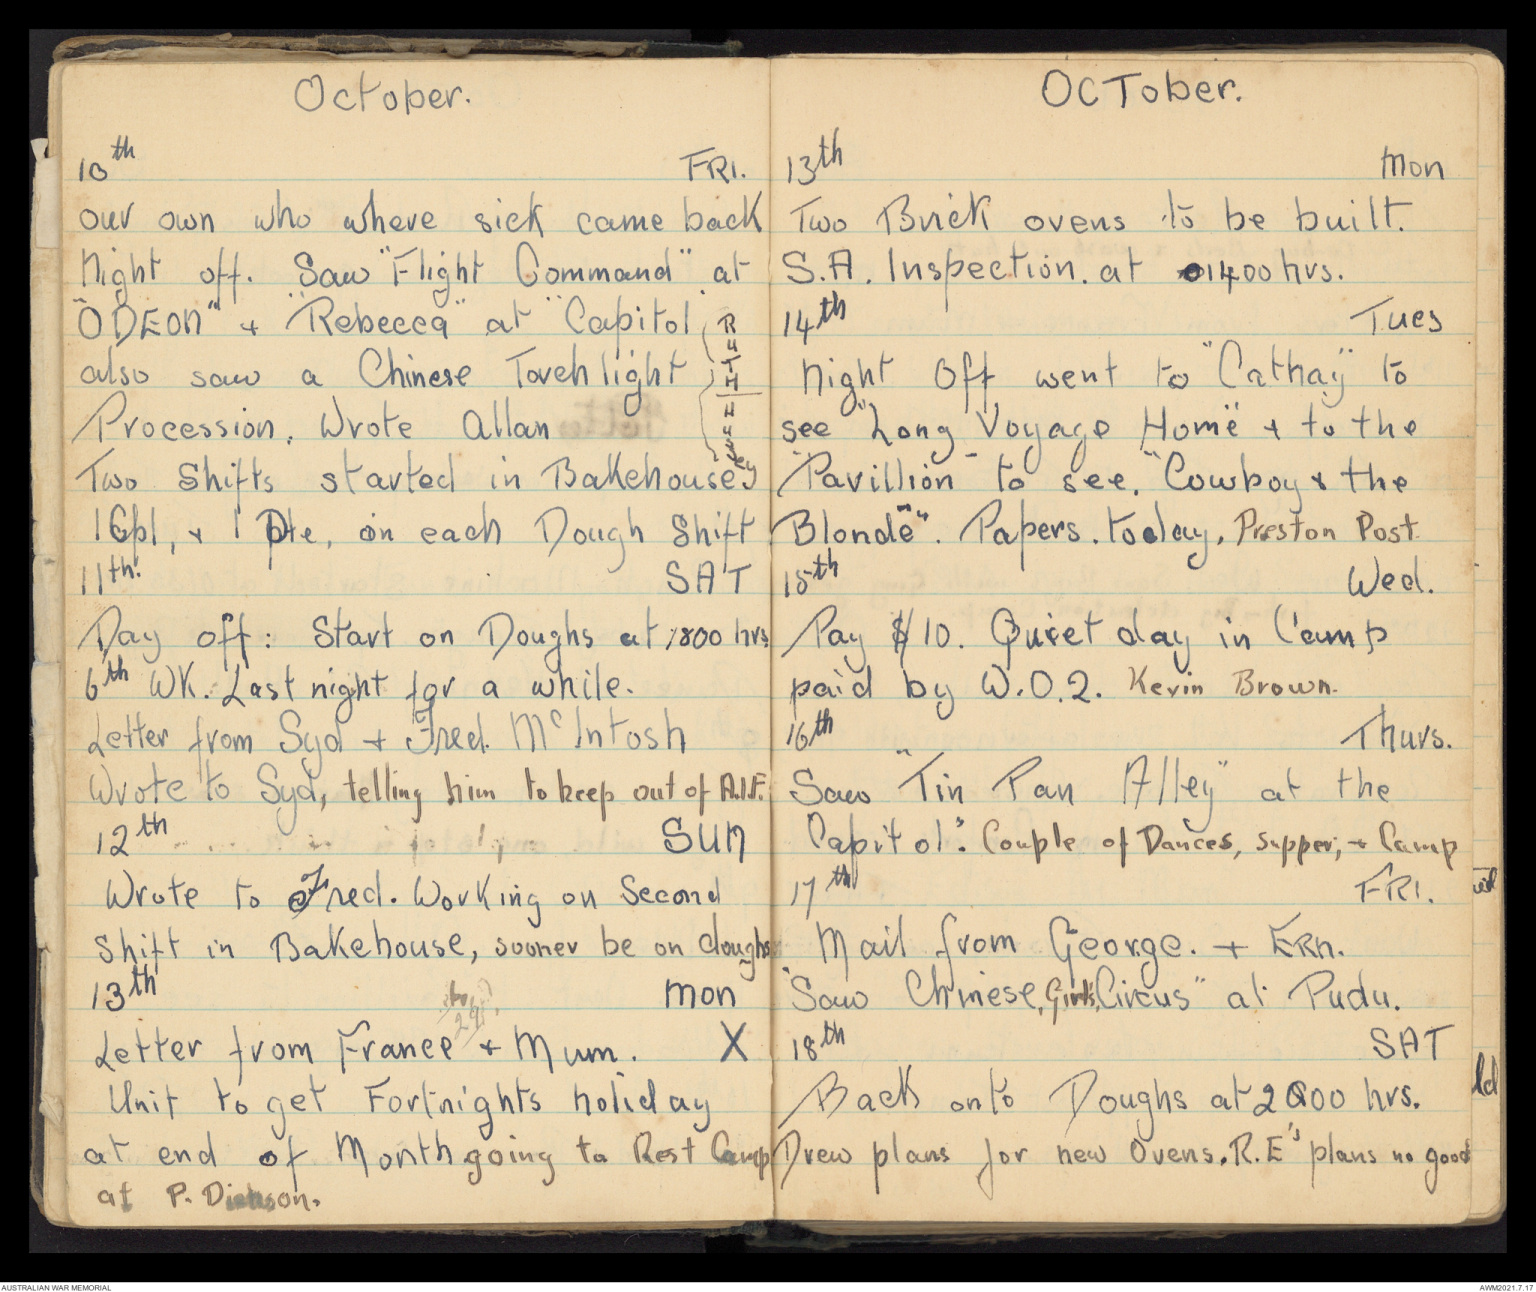 October.
10th FRI.
our own who where sick came back
Night off. Saw "Flight Command" at
"ODEON" + "Rebecca" at "Capitol
also saw a Chinese Torchlight
Procession. Wrote Allan
RUTH
Two Shifts started in Bakehouse
1 Cpl, + 1 Pte, on each Dough Shift
11th. SAT
Day off: Start on Doughs at 1800 hrs
6th WK. Last night for a while.
Letter from Syd + Fred. McIntosh
Wrote to Syd, telling him to keep out of A.I.F.
12th SUN
Wrote to Fred. Working on Second
Shift in Bakehouse, sooner be on doughs
13th Mon
Letter from France + Mum. X
Unit to get Fortnights holiday
at end of Month going to Rest Camp
at P. Dickson.
OCTober.
13th Mon
Two Brick ovens to be built.
S.A. Inspection. at 01400 hrs.
14th Tues
Night Off went to "Cathay" to
see "Long Voyage Home" + to the
"Pavillion" to see. "Cowboy + the
Blonde". Papers. today, Preston Post.
15th Wed.
Pay $10. Quiet day in Camp
paid by W.O.2. Kevin Brown.
16th Thurs.
Saw "Tin Pan Alley" at the
Capitol". Couple of Dances, supper, + Camp
17th FRI.
Mail from George. + ERn.
"Saw Chinese, Girls, Circus" at Pudu.
18th SAT
Back onto Doughs at 2000 hrs.
Drew plans for new Ovens. R.E's plans no good
ld
AUSTRALIAN WAR MEMORIAL
AWM2021.7.17